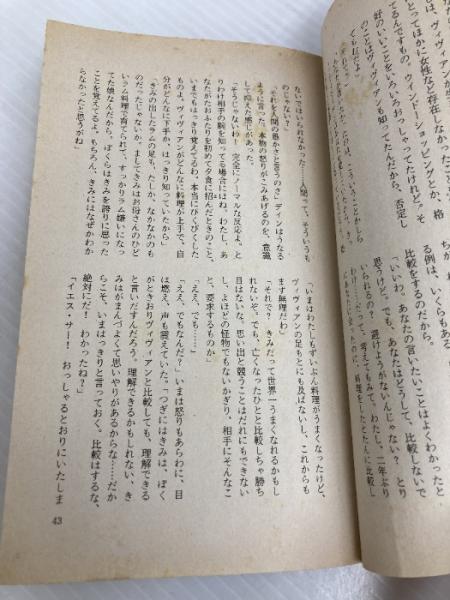 ないではいられなかった
そういうも
のじゃない？」
「それを人間の愚かさと言うのさ」ディンはうなる
ように言った。本物の怒りがこみあげるのを、意識
して抑えた感じがあった。
「そうじゃないわ！　完全にノーマルな反応よ、と
りわけ相手の腕を知ってる場合にはね。わたし、あ
なたがたおふたりを初めて夕食に招んだときのこと、
いまでもはっきり覚えてるわ、本当にびくびくした
ものよ。ヴィヴィアンがどんなに料理が上手で、自
分がどんなに下手か、はっきり知っていたから」
「きみの出したラムの足も、たしか、なかなかのも
のだったじゃないか。ましてきみはお母さんのひど
いラム料理で育てられて、すっかりラム嫌いになっ
てた娘なんだから。ぼくらはきみを誇りに思った
ことを覚えてるよ。もちろん、きみにはなぜかわか
らなかったと思うがね」
「いまはわたしもずいぶん料理がうまくなったけど、
ヴィヴィアンの足もとにも及ばないし、これからも
まず無理だわ」
「それで？　きみだって世界一うまくなれるかもし
れないぞ。でも、亡くなったひとと比較しちゃ勝ち
目はないな。思い出と競うことはだれにもできない
し、よほどの怪物でもないかぎり、相手にそんなこ
と、要求するものか」
「ええ、でも……」
「ええ、でもなんだ？」いまは怒りもあらわに、目
は燃え、声も震えていた。「つぎにはきみは、ぼく
がときおりヴィヴィアンと比較しても、理解できる
と言いだすんだろう。理解できるかもしれない、き
みはがまんづよくて思いやりがあるからな……だか
らこそ、いまはっきりと言っておく。比較はするな、
絶対にだ！　わかったね？」
「イエス・サー！　おっしゃるとおりにいたしま
43
は、ヴィヴィアンが生
とってほかに女性など存在しなかった
てるんですもの。ウィンドーショッピングとか、格
好のいいことをいろいろおっしゃってたけれど。そ
のことはヴィヴィアンも知ってたんだから、否定し
てもだめよ」
る例は、いくらもある
比較をするのだから。
「いいわ。あなたの言いたいことはよくわかったと
思うけど。でも、あなたはどうして、比較しないで
いられるの？　避けようがないんじゃない？　とり